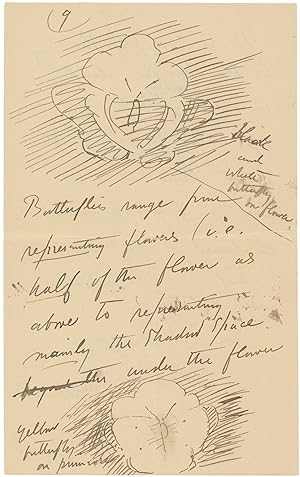 9
Black
and
white
butterfly
on flower
Butterflies range from
representing flowers (i.e.
half of the flower as
above to representing
mainly the Shadow Space
beyond the under the flower
Yellow
butterfly
on primrose